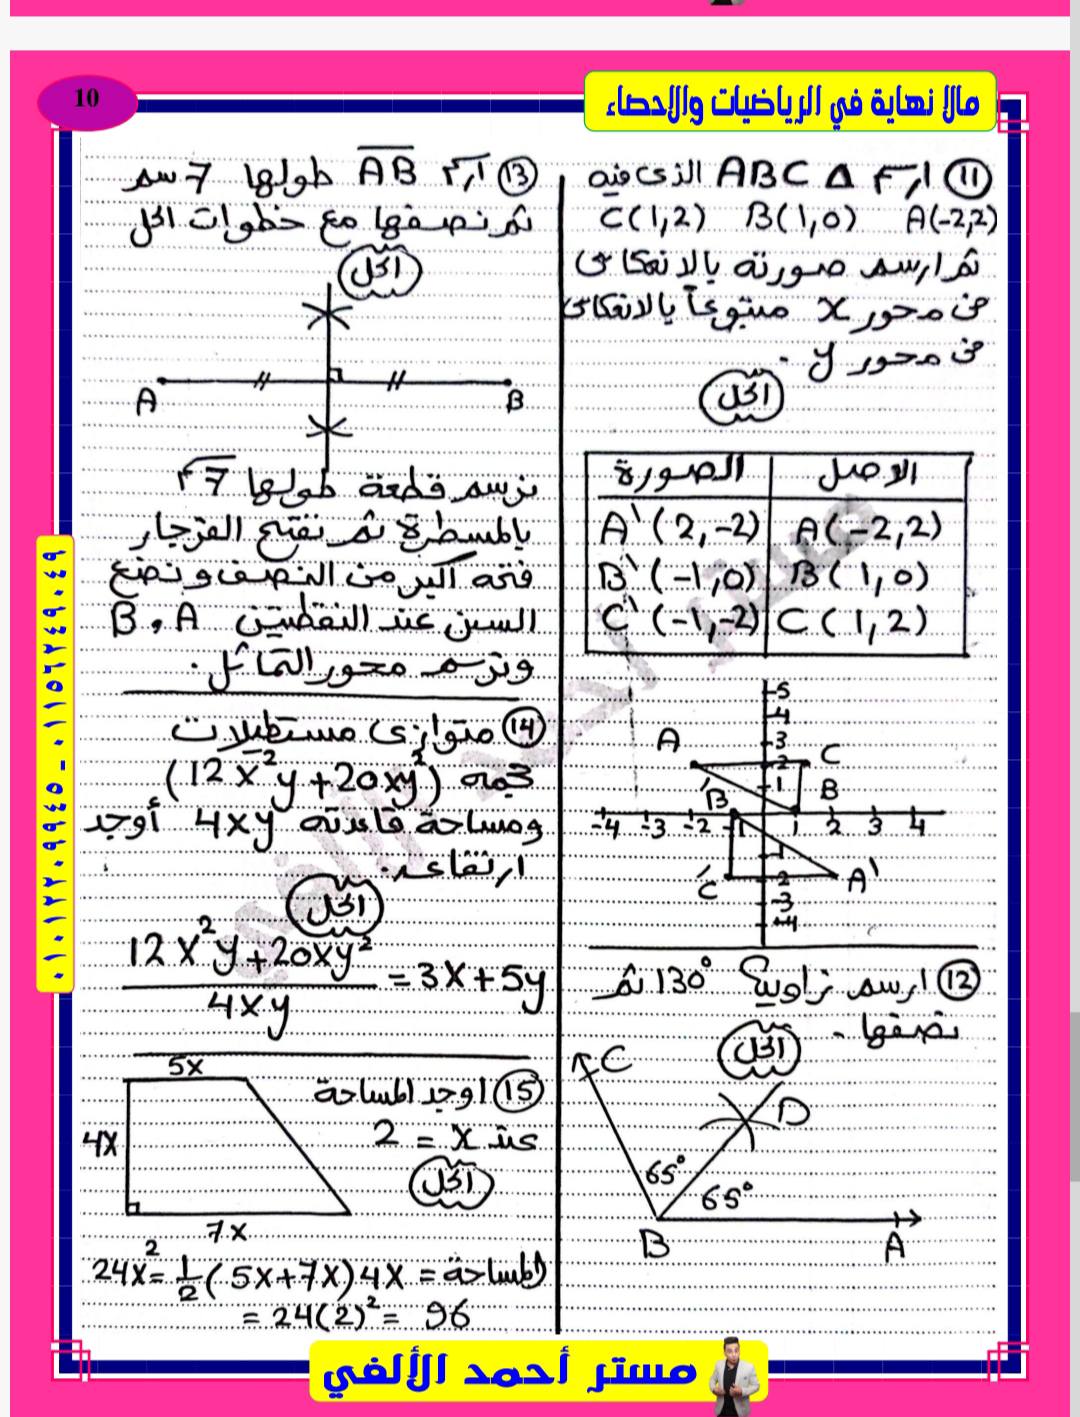 10
مالا نهاية في الرياضيات والاحصاء
⑪ ارسم Δ ABC الذى فيه
A(-2,2) B(1,0) C(1,2)
ثم ارسم صورته بالانعكاس
فى محور x متبوعاً بالانعكاس
فى محور y .
الحل
الاصل الصورة
A(-2,2) A'(2,-2)
B(1,0) B'(-1,0)
C(1,2) C'(-1,-2)
5
4
3
A 2 C
1 B
B'
-4 -3 -2 -1 1 2 3 4
-1
C' -2 A'
-3
-4
⑫ ارسم زاوية 130° ثم
نصفها .
الحل
C
D
65°
65°
B A
⑬ ارسم AB طولها 7 سم
ثم نصفها مع خطوات الحل
الحل
A B
نرسم قطعة طولها 7 سم
بالمسطرة ثم نفتح الفرجار
فتحه أكبر من النصف ونضع
السن عند النقطتين A و B
ونرسم محور التماثل .
⑭ متوازى مستطيلات
حجمه (12x²y + 20xy²)
ومساحة قاعدته 4xy أوجد
ارتفاعه .
الحل
12x²y + 20xy² / 4xy = 3x + 5y
⑮ اوجد المساحة
عند x = 2
الحل
5x
4x
7x
المساحة = 24x² = ½ (5x + 7x) 4x
= 24(2)² = 96
٠١٠١٢٢٠٩٩٤٥ - ٠١١٥٦٢٤٩٠٤٩
مستر أحمد الألفي